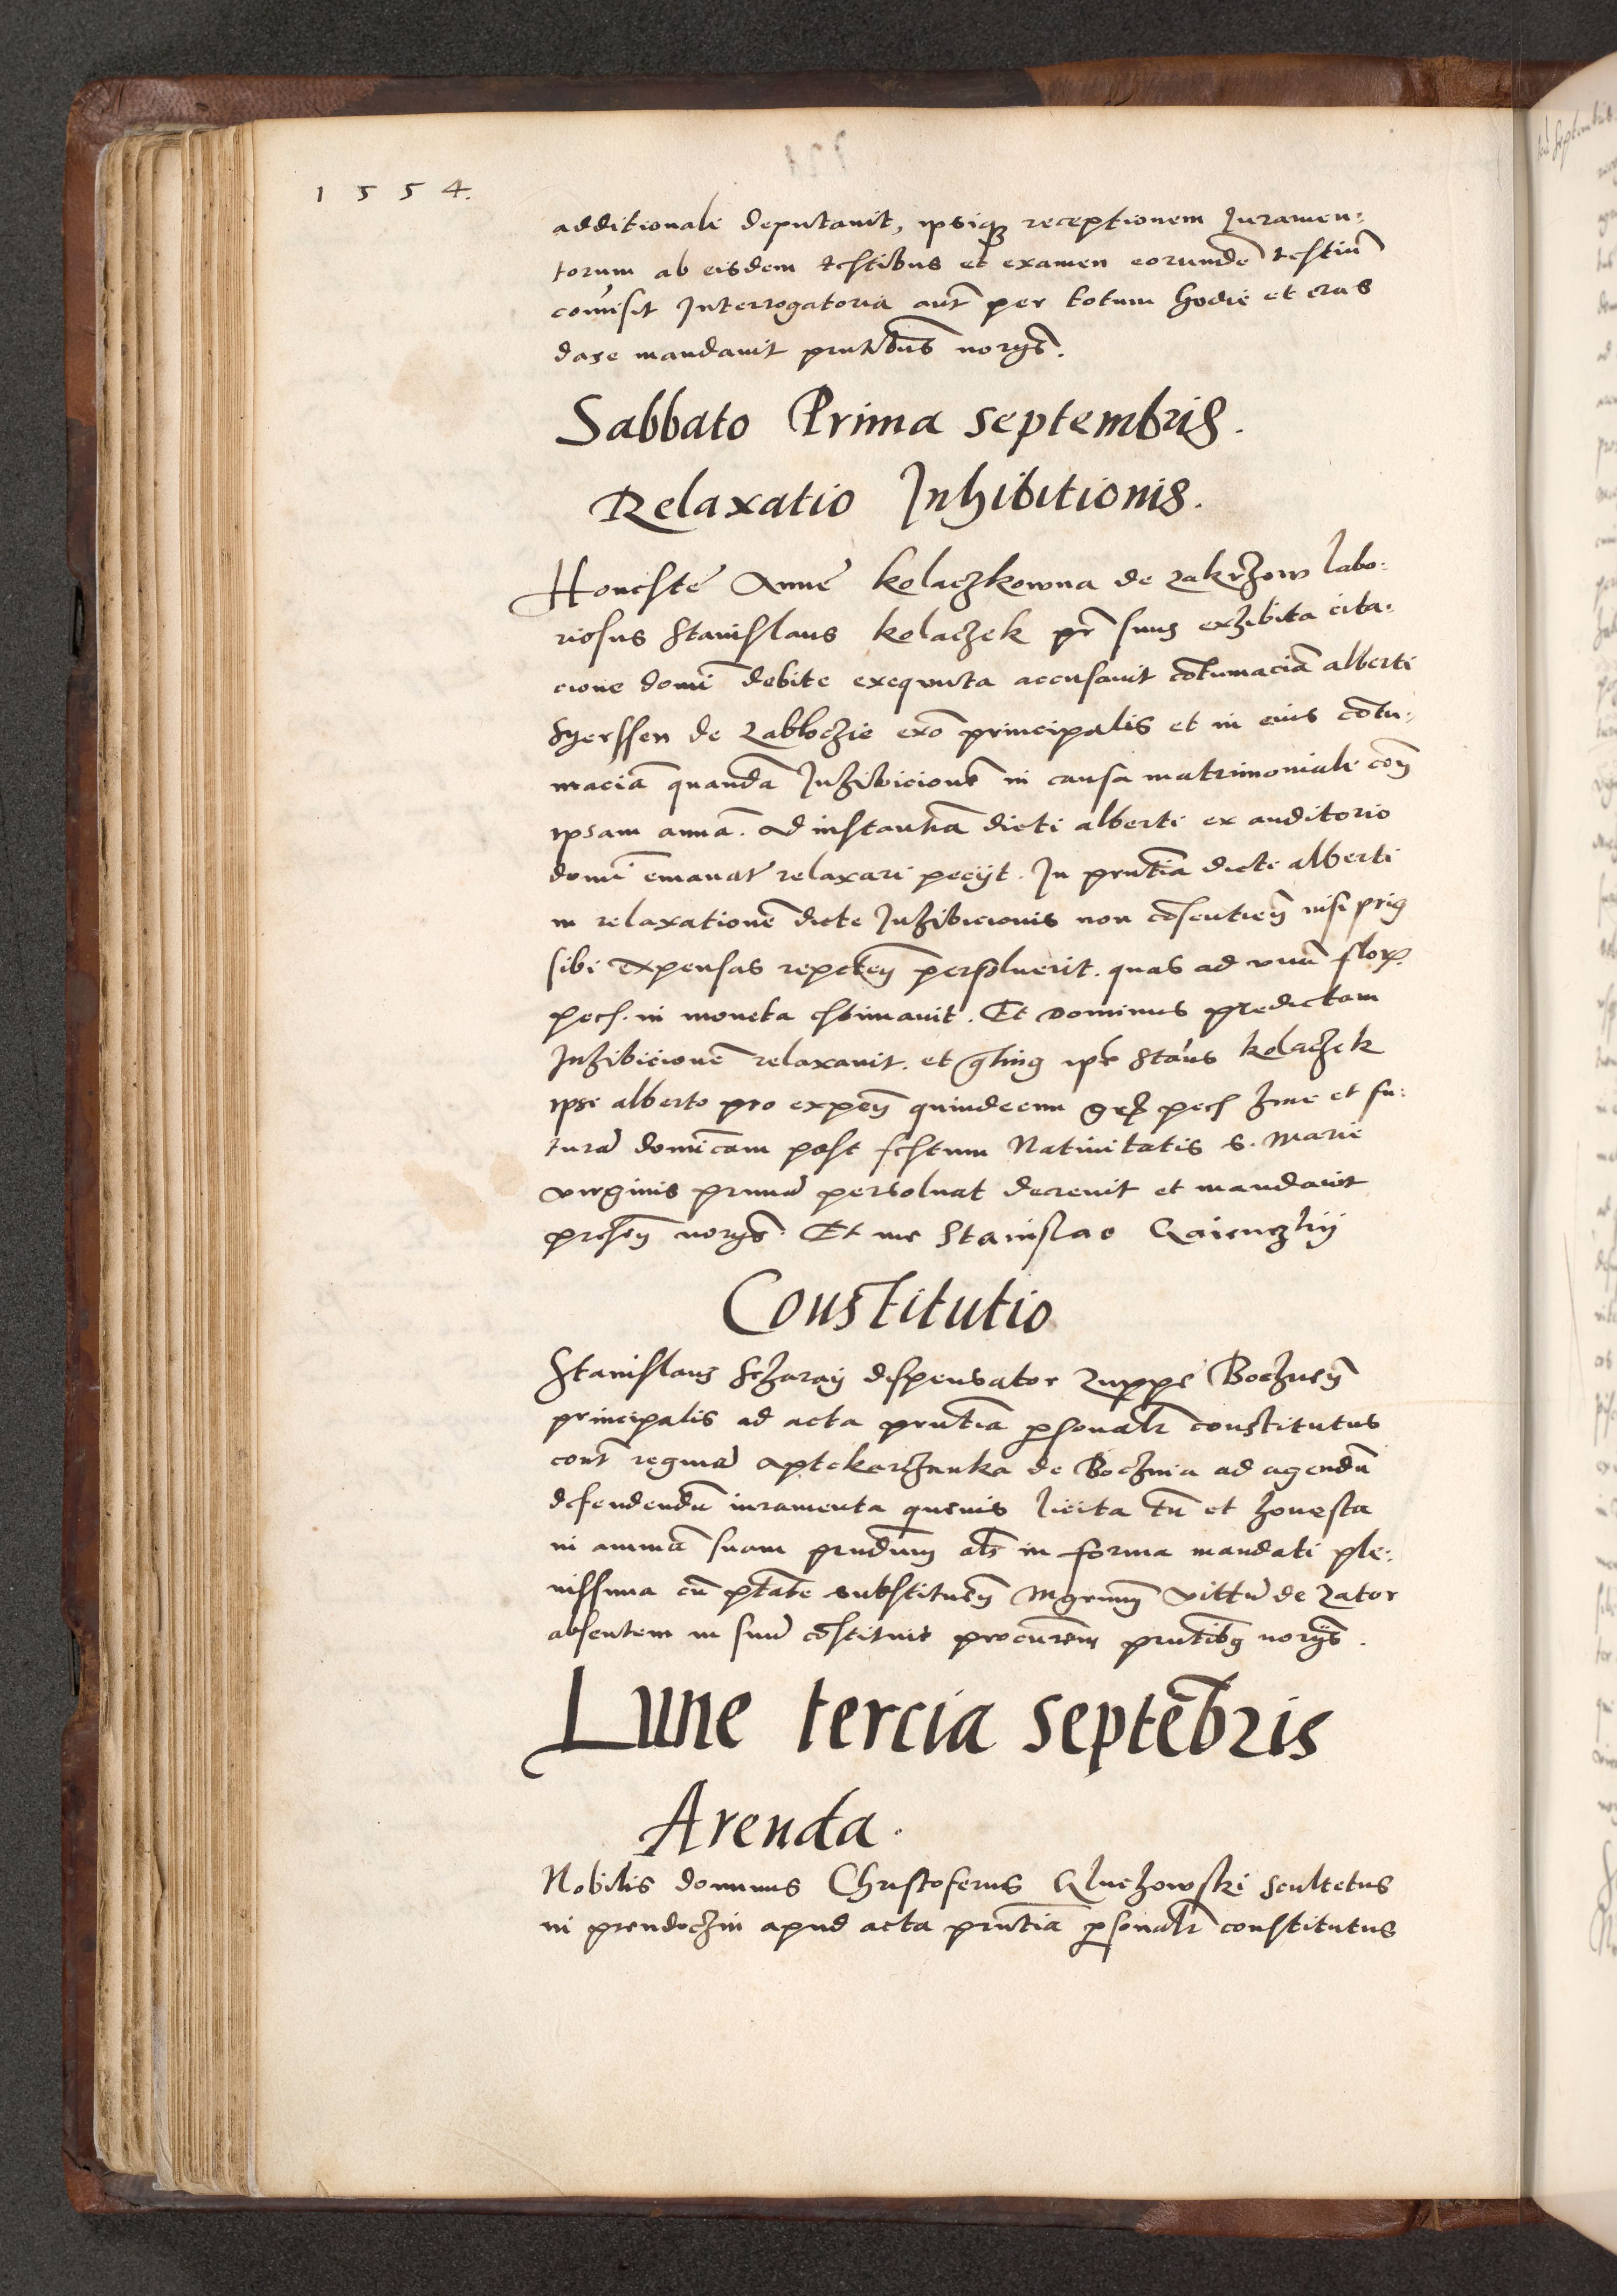 1554.
additionali deputavit, ipsiq; receptionem Juramen:
torum ab eisdem testibus et examen eorundē testiū
com̄isit Interrogatoria aūt per totum hodie et cras
dare mandavit pn̄tibus norys.
Sabbato Prima septembris.
Relaxatio Inhibitionis.
Honeste Anne kolaczkowna de zakrzow labo:
riosus Stanislaus kolaczek pr̄ suus exhibita cita:
cione domī debite exequuta accusavit cōtumaciā alberti
Syerssen de Zabloczie exō principalis et in eius cōtu:
maciā quandā Inhibicionē in causa matrimoniali con
ipsam annā. ad instantiā dicti alberti ex auditorio
domī emanat̄ relaxari peciit. In pn̄tia dicti alberti
in relaxationē dicte Inhibicionis non cōsentien nisi prius
sibi expensas repeten persolverit. quas ad unū flor.
pecs. in moneta estimavit. Et Dominus predictam
Inhibicionē relaxavit. et ipse Stan̄s kolaczek
ipsi alberto pro expen quindecim gr pecs hinc et fu:
turā domīcam post festum Nativitatis S. Marie
virginis primā persolvat decrevit et mandavit
presen norys. Et me Stanislao
Constitutio
Stanislaus Sczaray dispensator Zuppe Bochnen
principalis ad acta pn̄tia p̄sonalr̄ constitutus
cont̄ reginā aptekarzanka de Bochnia ad agendū
defendendū iuramenta quevis licita tn̄ et honesta
in animā suam als̄ in forma mandati ple:
nissima cū ptāte substituen Mgrum vittū de Zator
absentem in suū cōstituit procurem pn̄tibus norys.
Lune tercia septēbris
Arenda.
Nobilis dominus Christoferus Gluchowski scultetus
in prendoczin apud acta pn̄tia p̄sonalr̄ constitutus